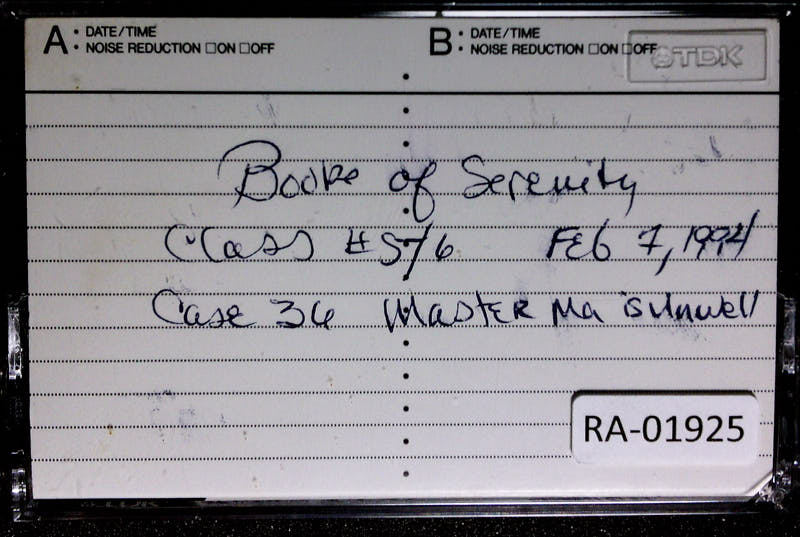 A • DATE/TIME
• NOISE REDUCTION □ON □OFF
B • DATE/TIME
• NOISE REDUCTION □ON □OFF
TDK
Book of Serenity
Class #576 Feb 7, 1994
Case 36 Master Ma is Unwell
RA-01925